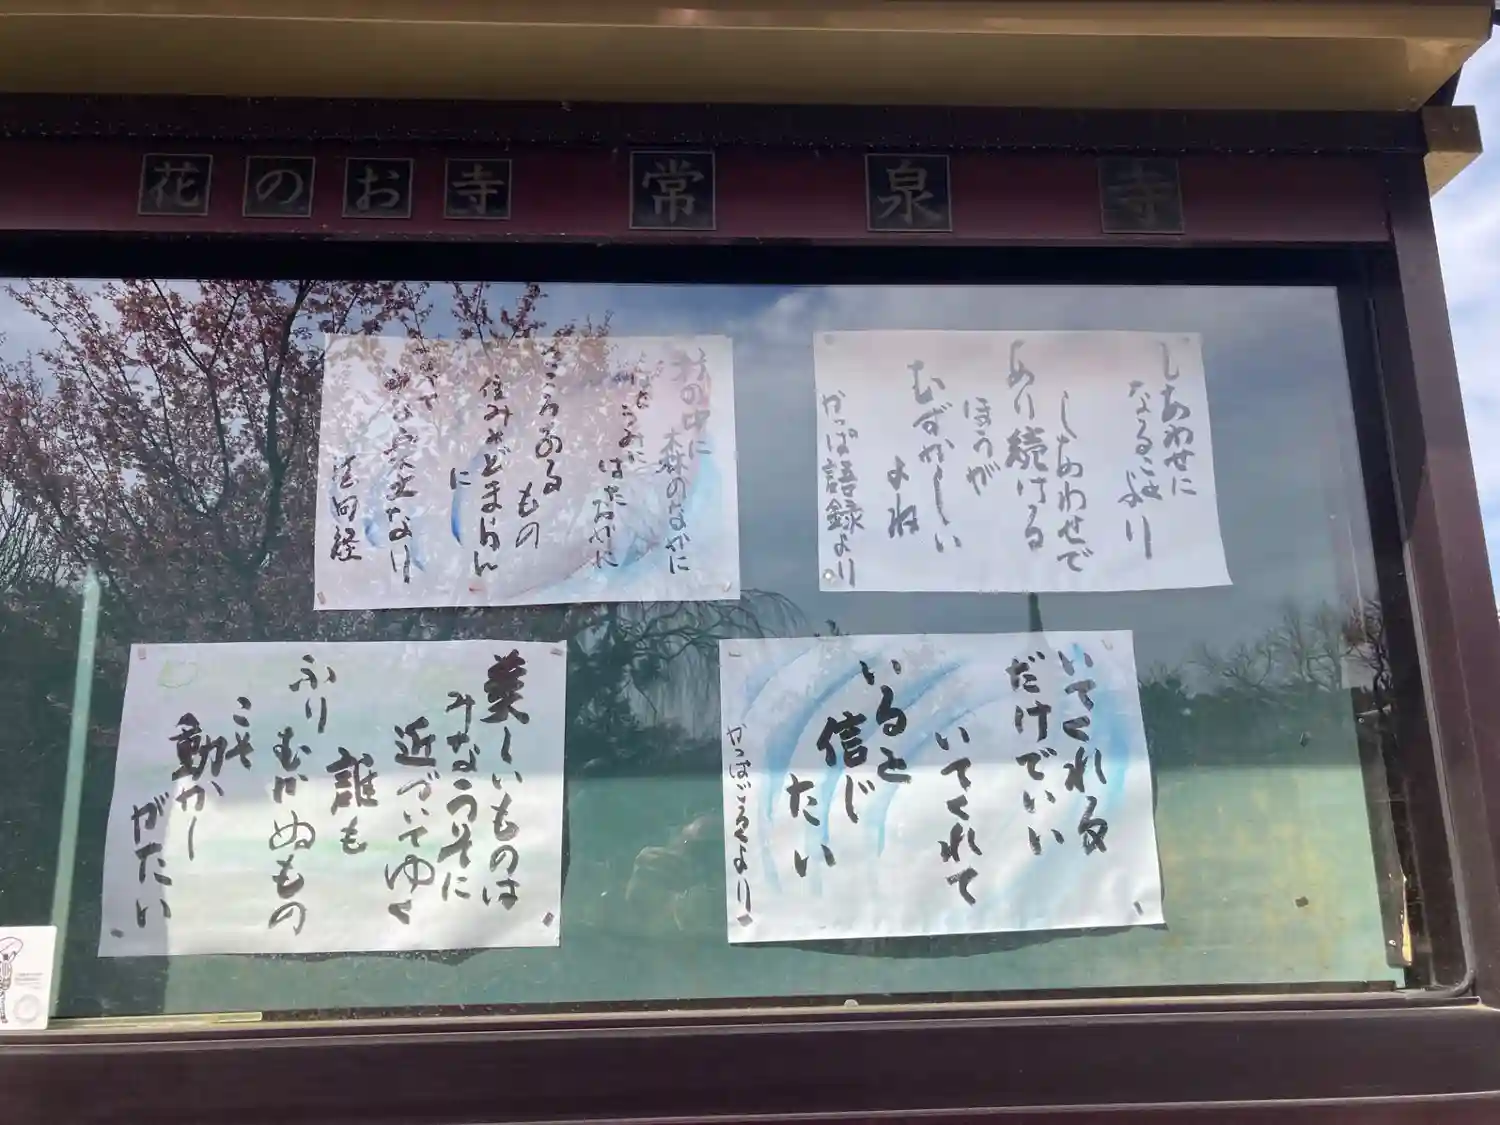 花のお寺 常泉寺
しあわせに
なることより
しあわせで
あり続ける
ほうが
むずかしい
よね
かっぱ語録より
村の中に
森のなかに
はたおかに
こころあるもの
住みとどまらん
に
なべて
楽土なり
法句経
いてくれる
だけでいい
いてくれて
いると
信じ
たい
かっぱごろくより
美しいものは
みなうそに
近づいてゆく
誰も
ふりむかぬもの
こそ
動かし
がたい